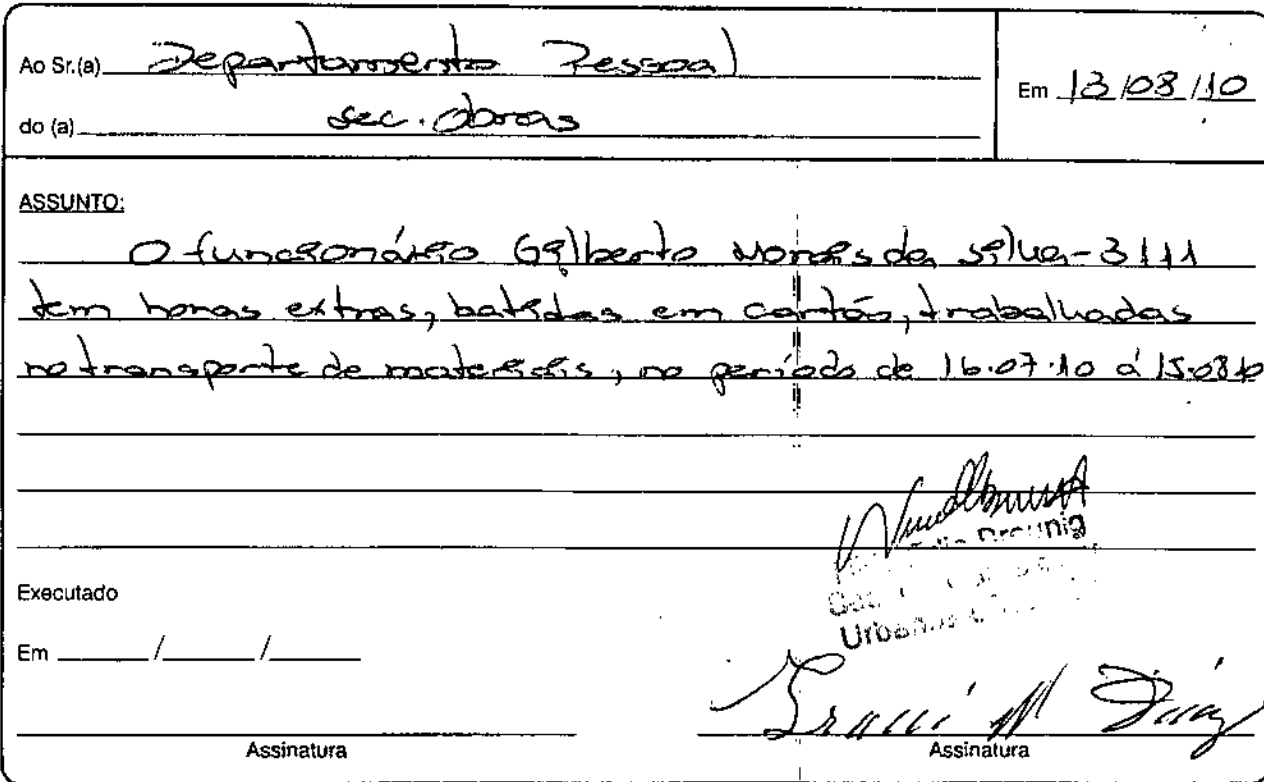 Ao Sr.(a) Departamento Pessoal
Em 13/08/10
do (a) sec. obras
ASSUNTO:
O funcionário Gilberto Morais da Silva-3111
tem horas extras, batidas em cartão, trabalhadas
no transporte de materiais, no período de 16.07.10 á 15.0810
Executado
Em ___/___/___
Assinatura
Assinatura